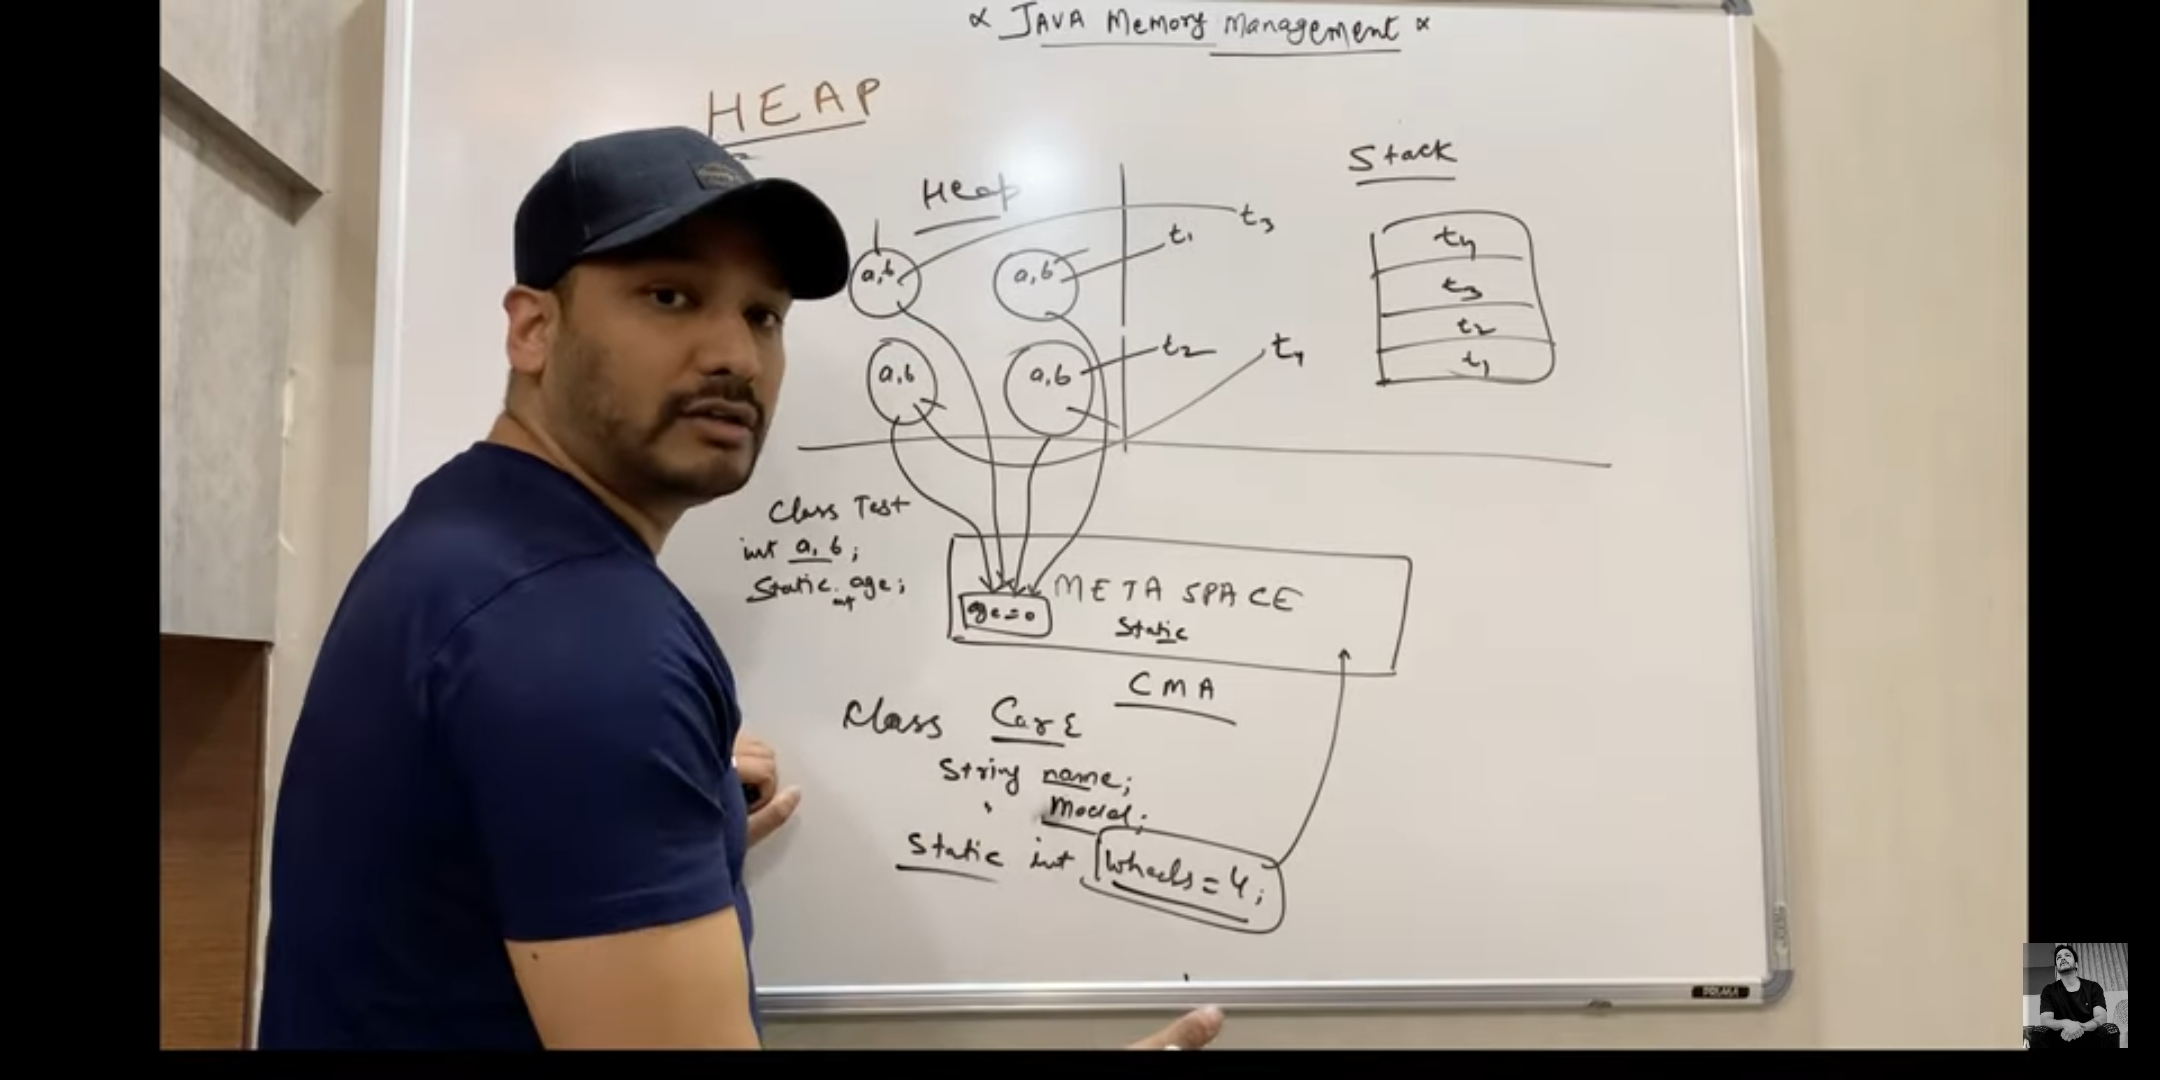 ∝ JAVA Memory Management ∝
HEAP
Heap
Stack
t3
t1
a,b
a,b
t2
t4
a,b
a,b
t4
t3
t2
t1
Class Test
int a, b;
Static int age;
META SPACE
age=0
Static
CMA
Class Car {
String name;
" Model;
Static int wheels = 4;